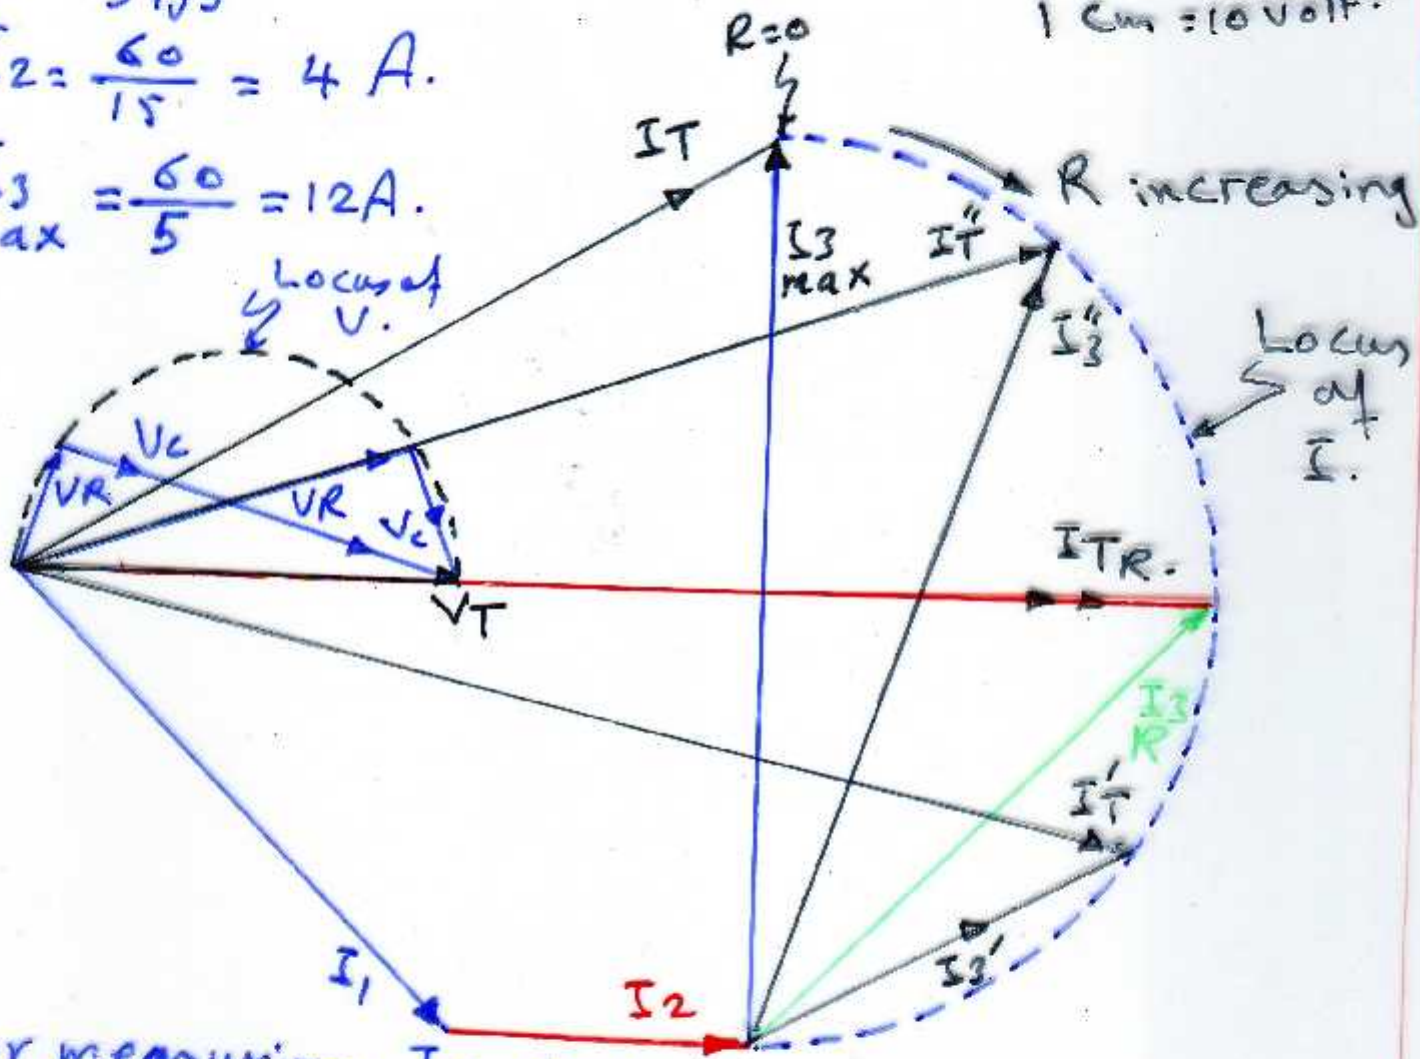 1 cm = 10 volt.
2 = 60/15 = 4 A.
3 max = 60/5 = 12A.
R=0
IT
R increasing
I3 max
I"T
I"3
Locus of V.
Locus of I.
Vc
VR
VR
Vc
VT
ITR.
I3R
I'T
I3'
I1
I2
r measuring I